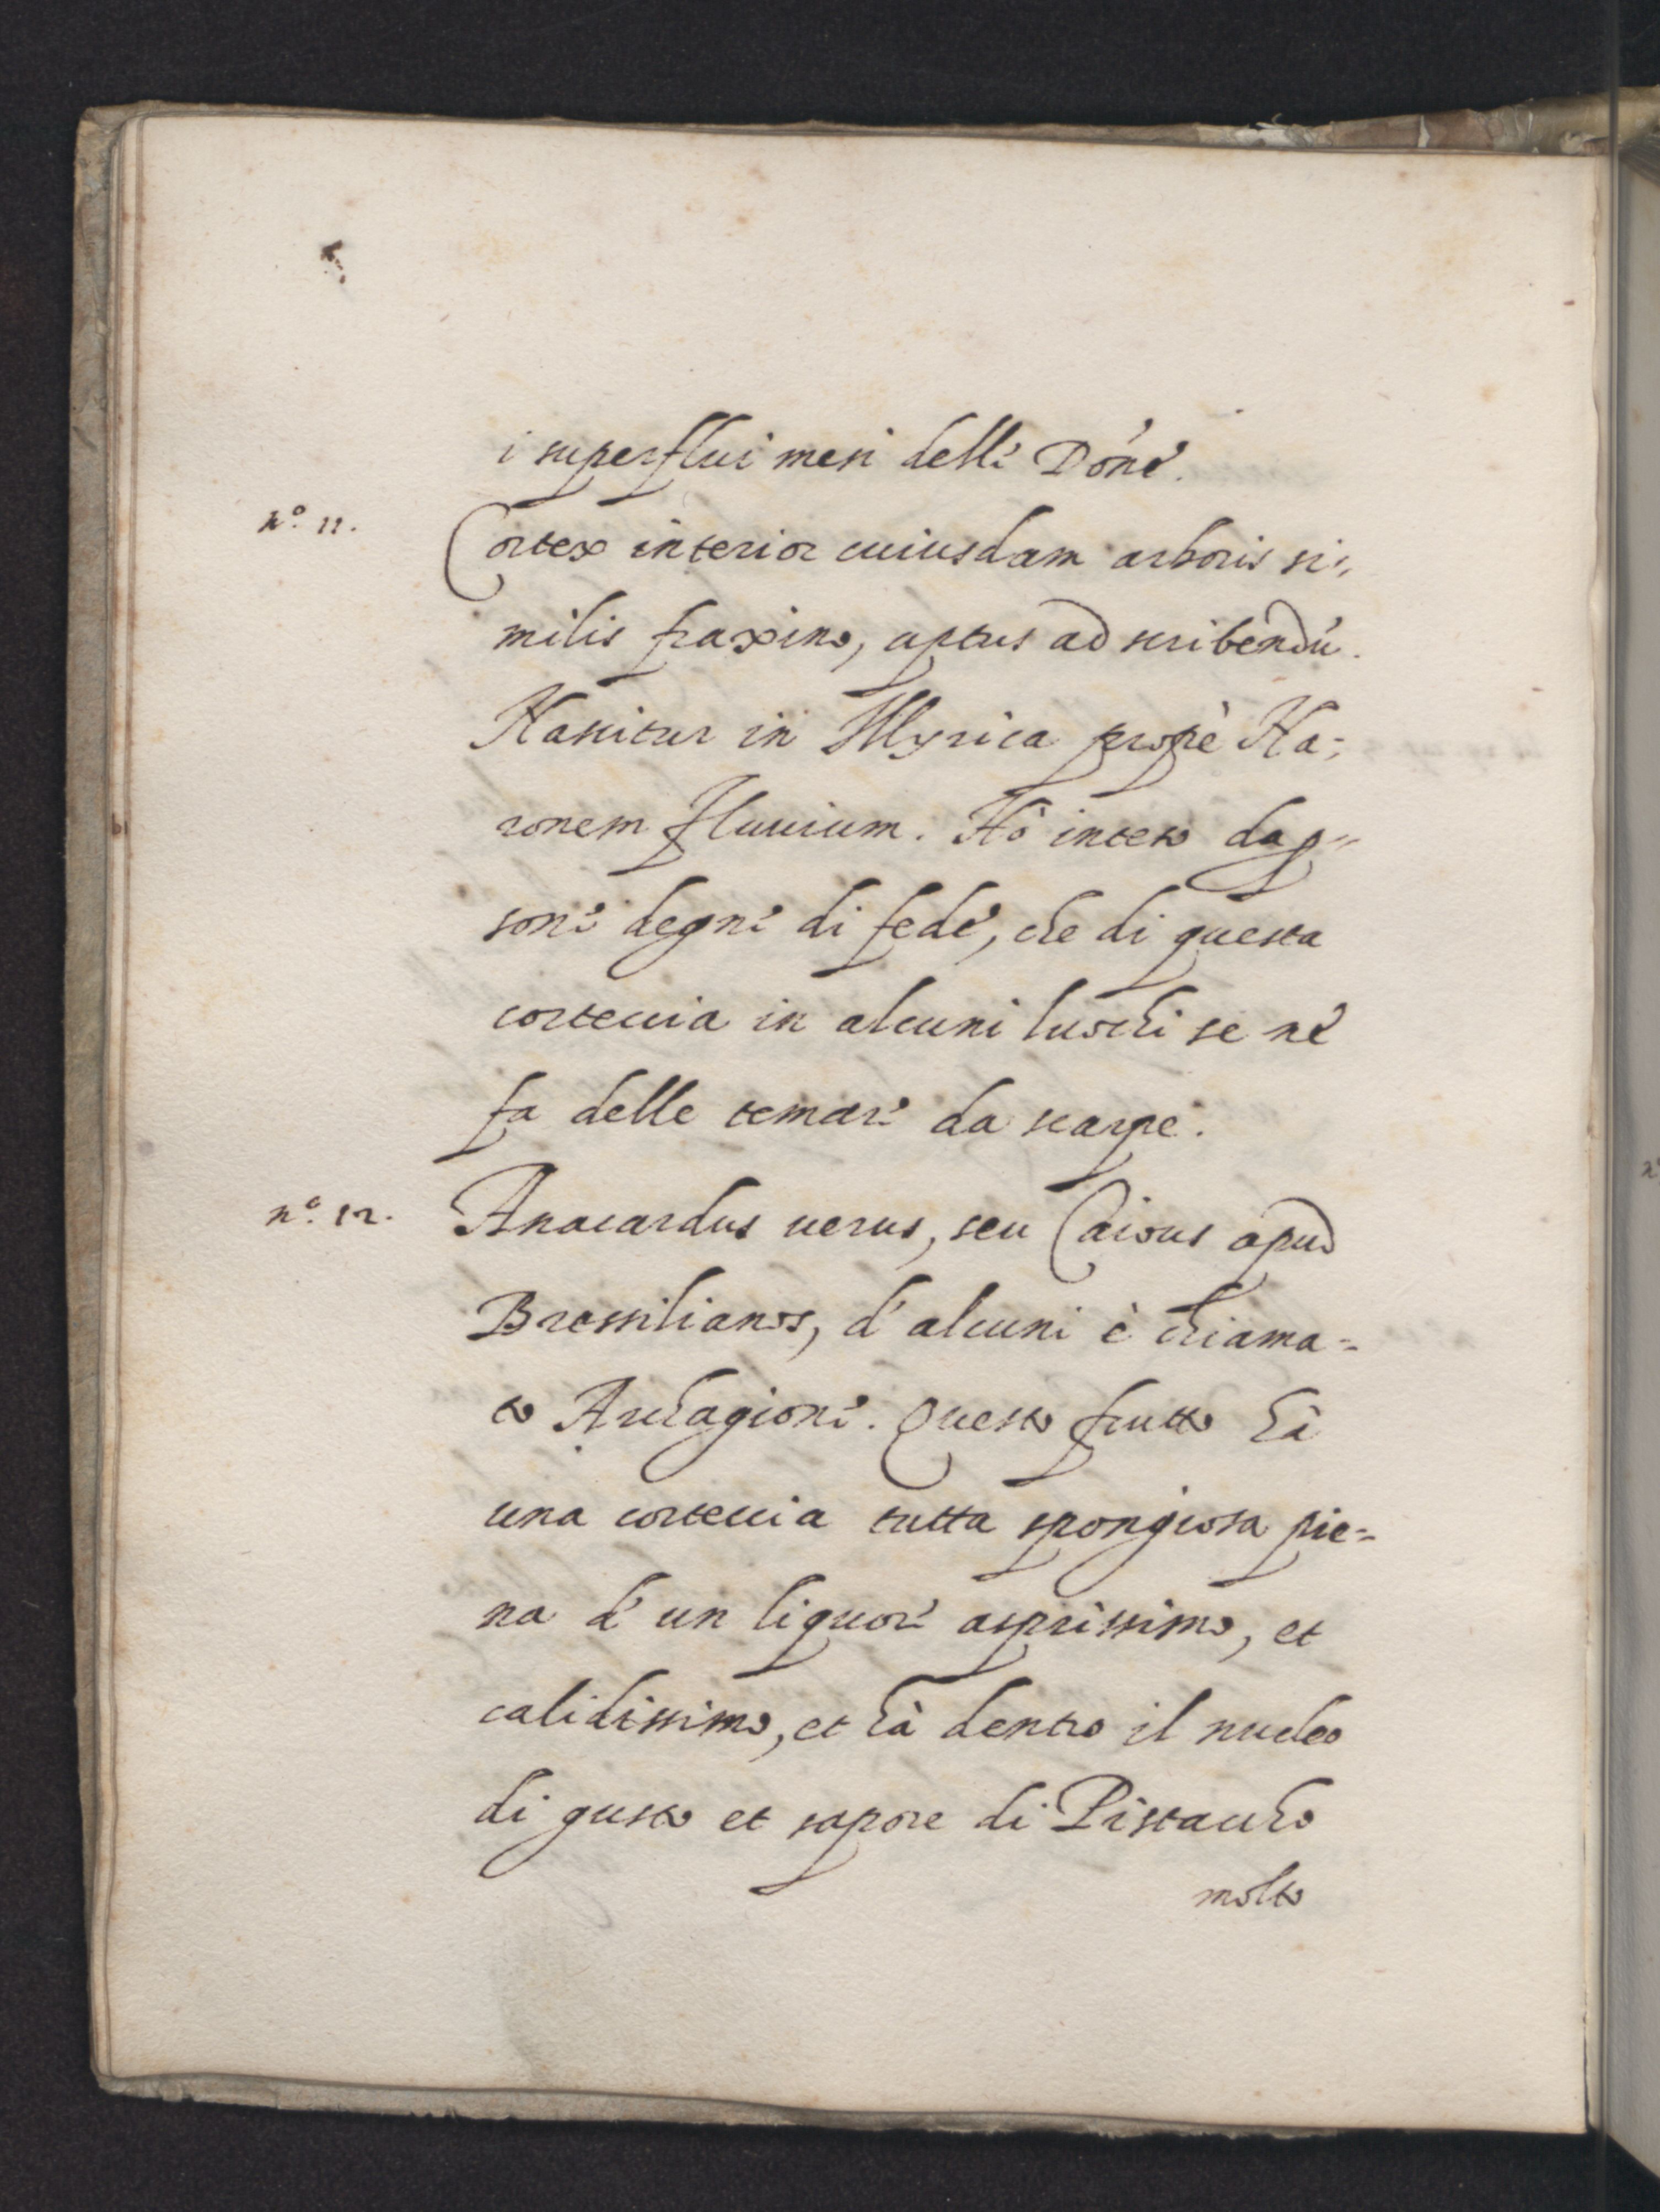 i superflui mesi delle Dóne.
n.º 11.
Cortex interior cuiusdam arboris si-
milis fraxino, aptus ad scribendú.
Nascitur in Illyrica propè Na-
ronem fluuium. Hò inteso da p-
sone degne di fede, che di questa
corteccia in alcuni luochi se ne
fa delle tomare da scarpe.
n.º 12.
Anacardus uerus, seu Caious apud
Bressilianos, d'alcuni è chiama-
to Archagione. Questo frutto hà
una corteccia tutta spongiosa pie-
na d'un liquore asprissimo, et
calidissimo, et hà dentro il nucleo
di gusto et sapore di Pistaccho
molto